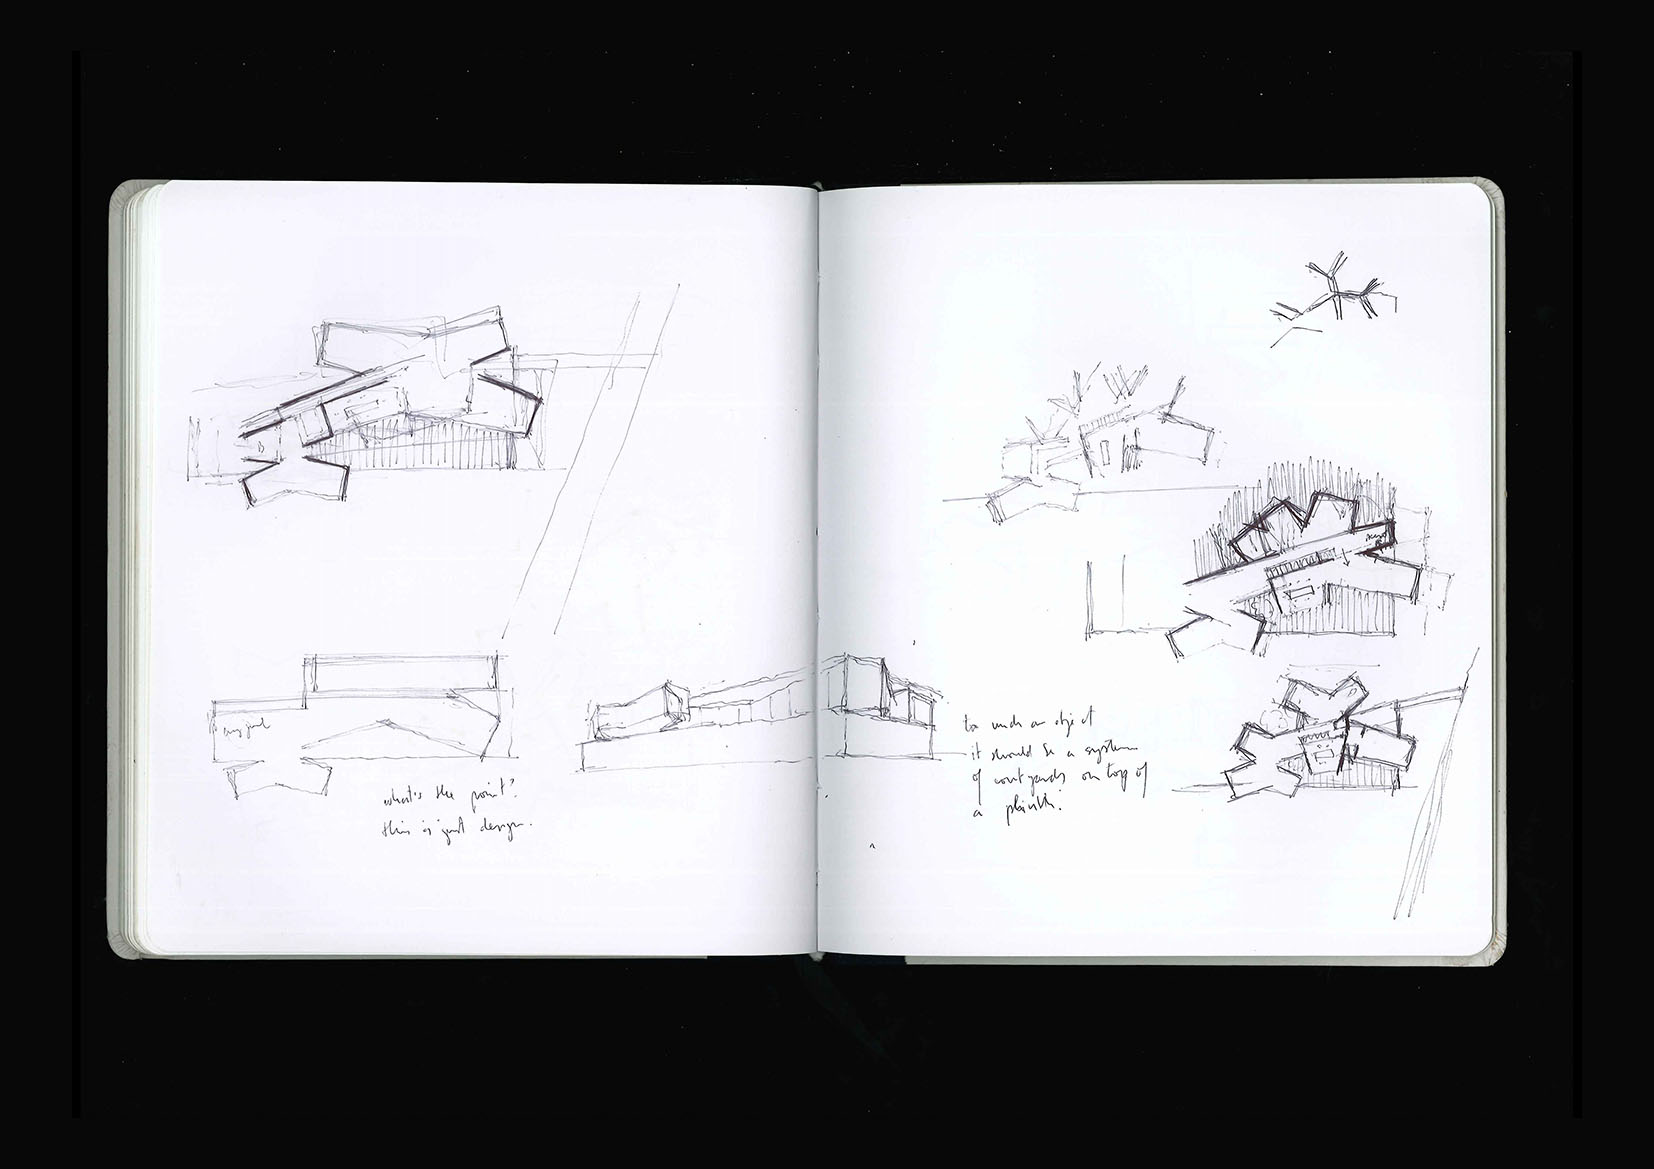 what's the point?
this is just design.
too much an object
it should be a system
of courtyards on top of
a plinth.